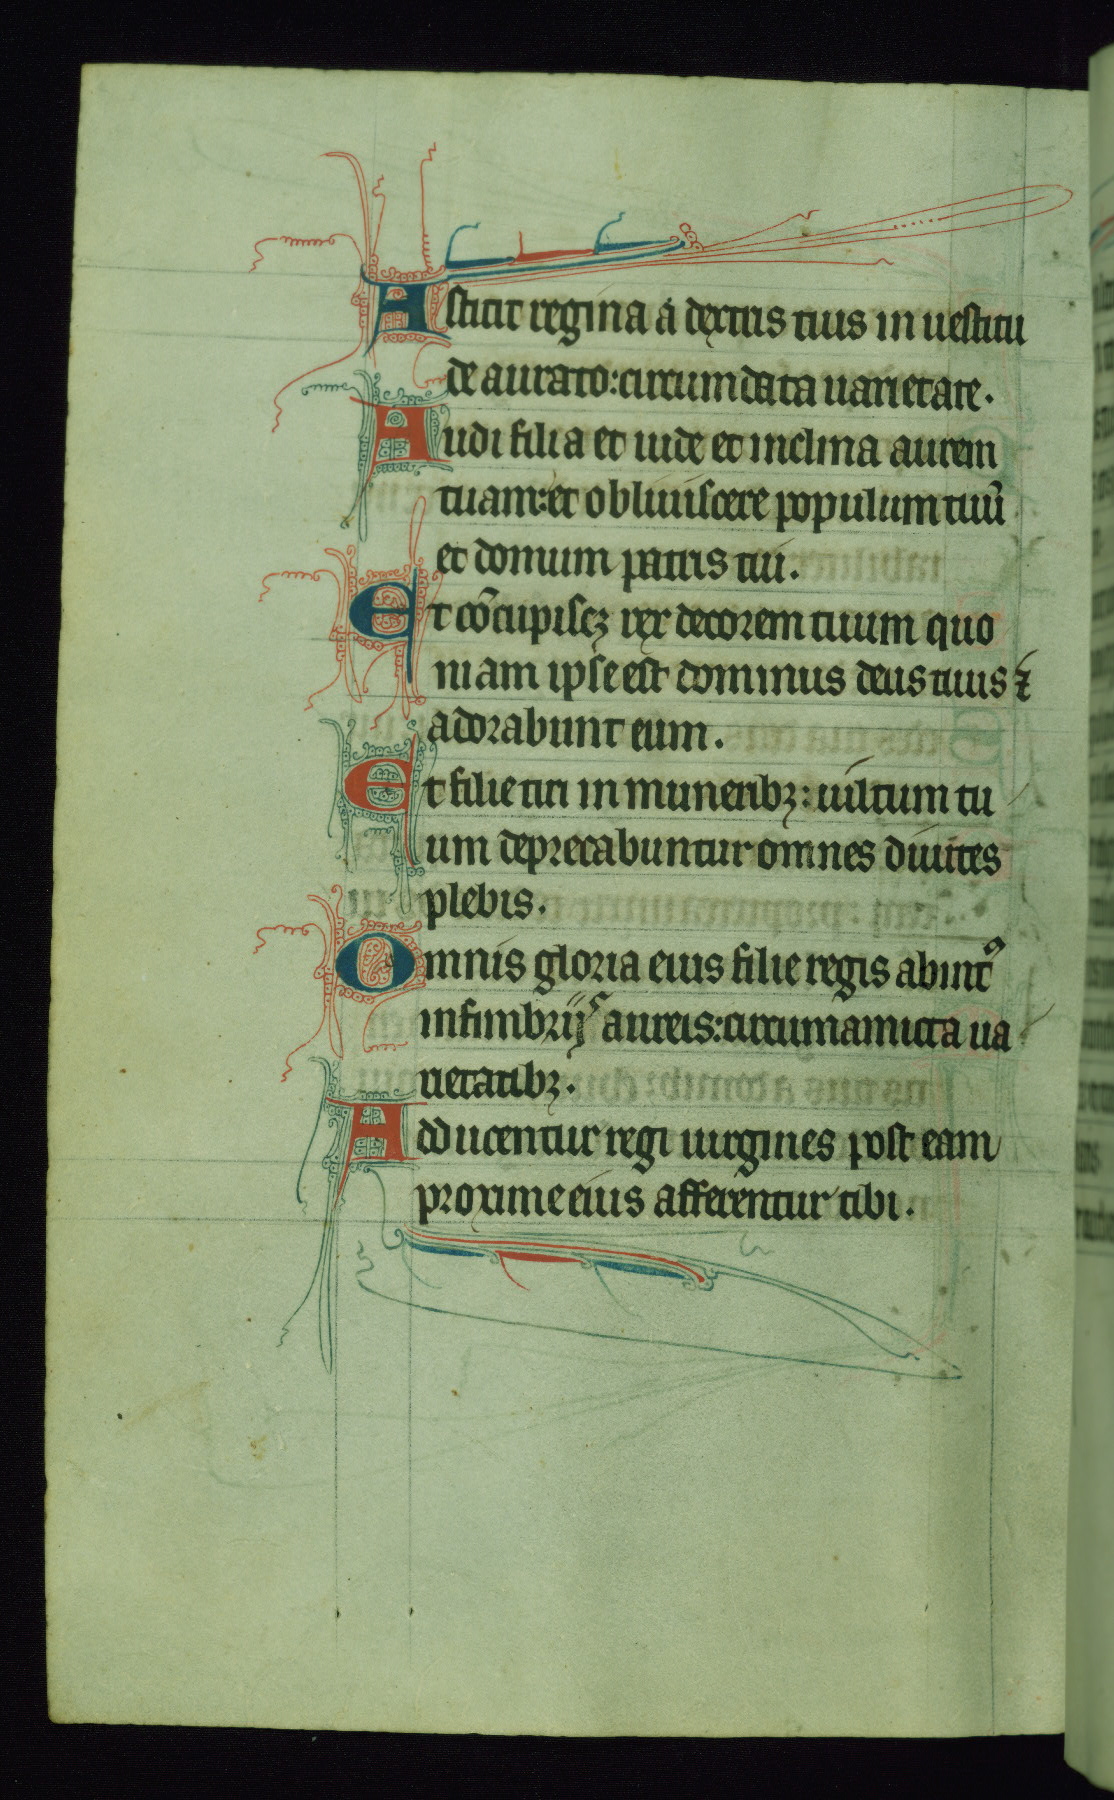 Astitit regina a dextris tuis in uestitu
de aurato: circumdata uarietate.
Audi filia et uide et inclina aurem
tuam: et obliuiscere populum tuū
et domum patris tui.
Et cōcupiscꝫ rex decorem tuum quo
niam ipse est dominus deus tuus ⁊
adorabunt eum.
Et filie tiri in muneribꝫ: uultum tu
um deprecabuntur omnes diuites
plebis.
Omnis gloria eius filie regis abintꝰ
in fimbrijs aureis: circumamicta ua
rietatibꝫ.
Adducentur regi uirgines post eam
proxime eius afferentur tibi.